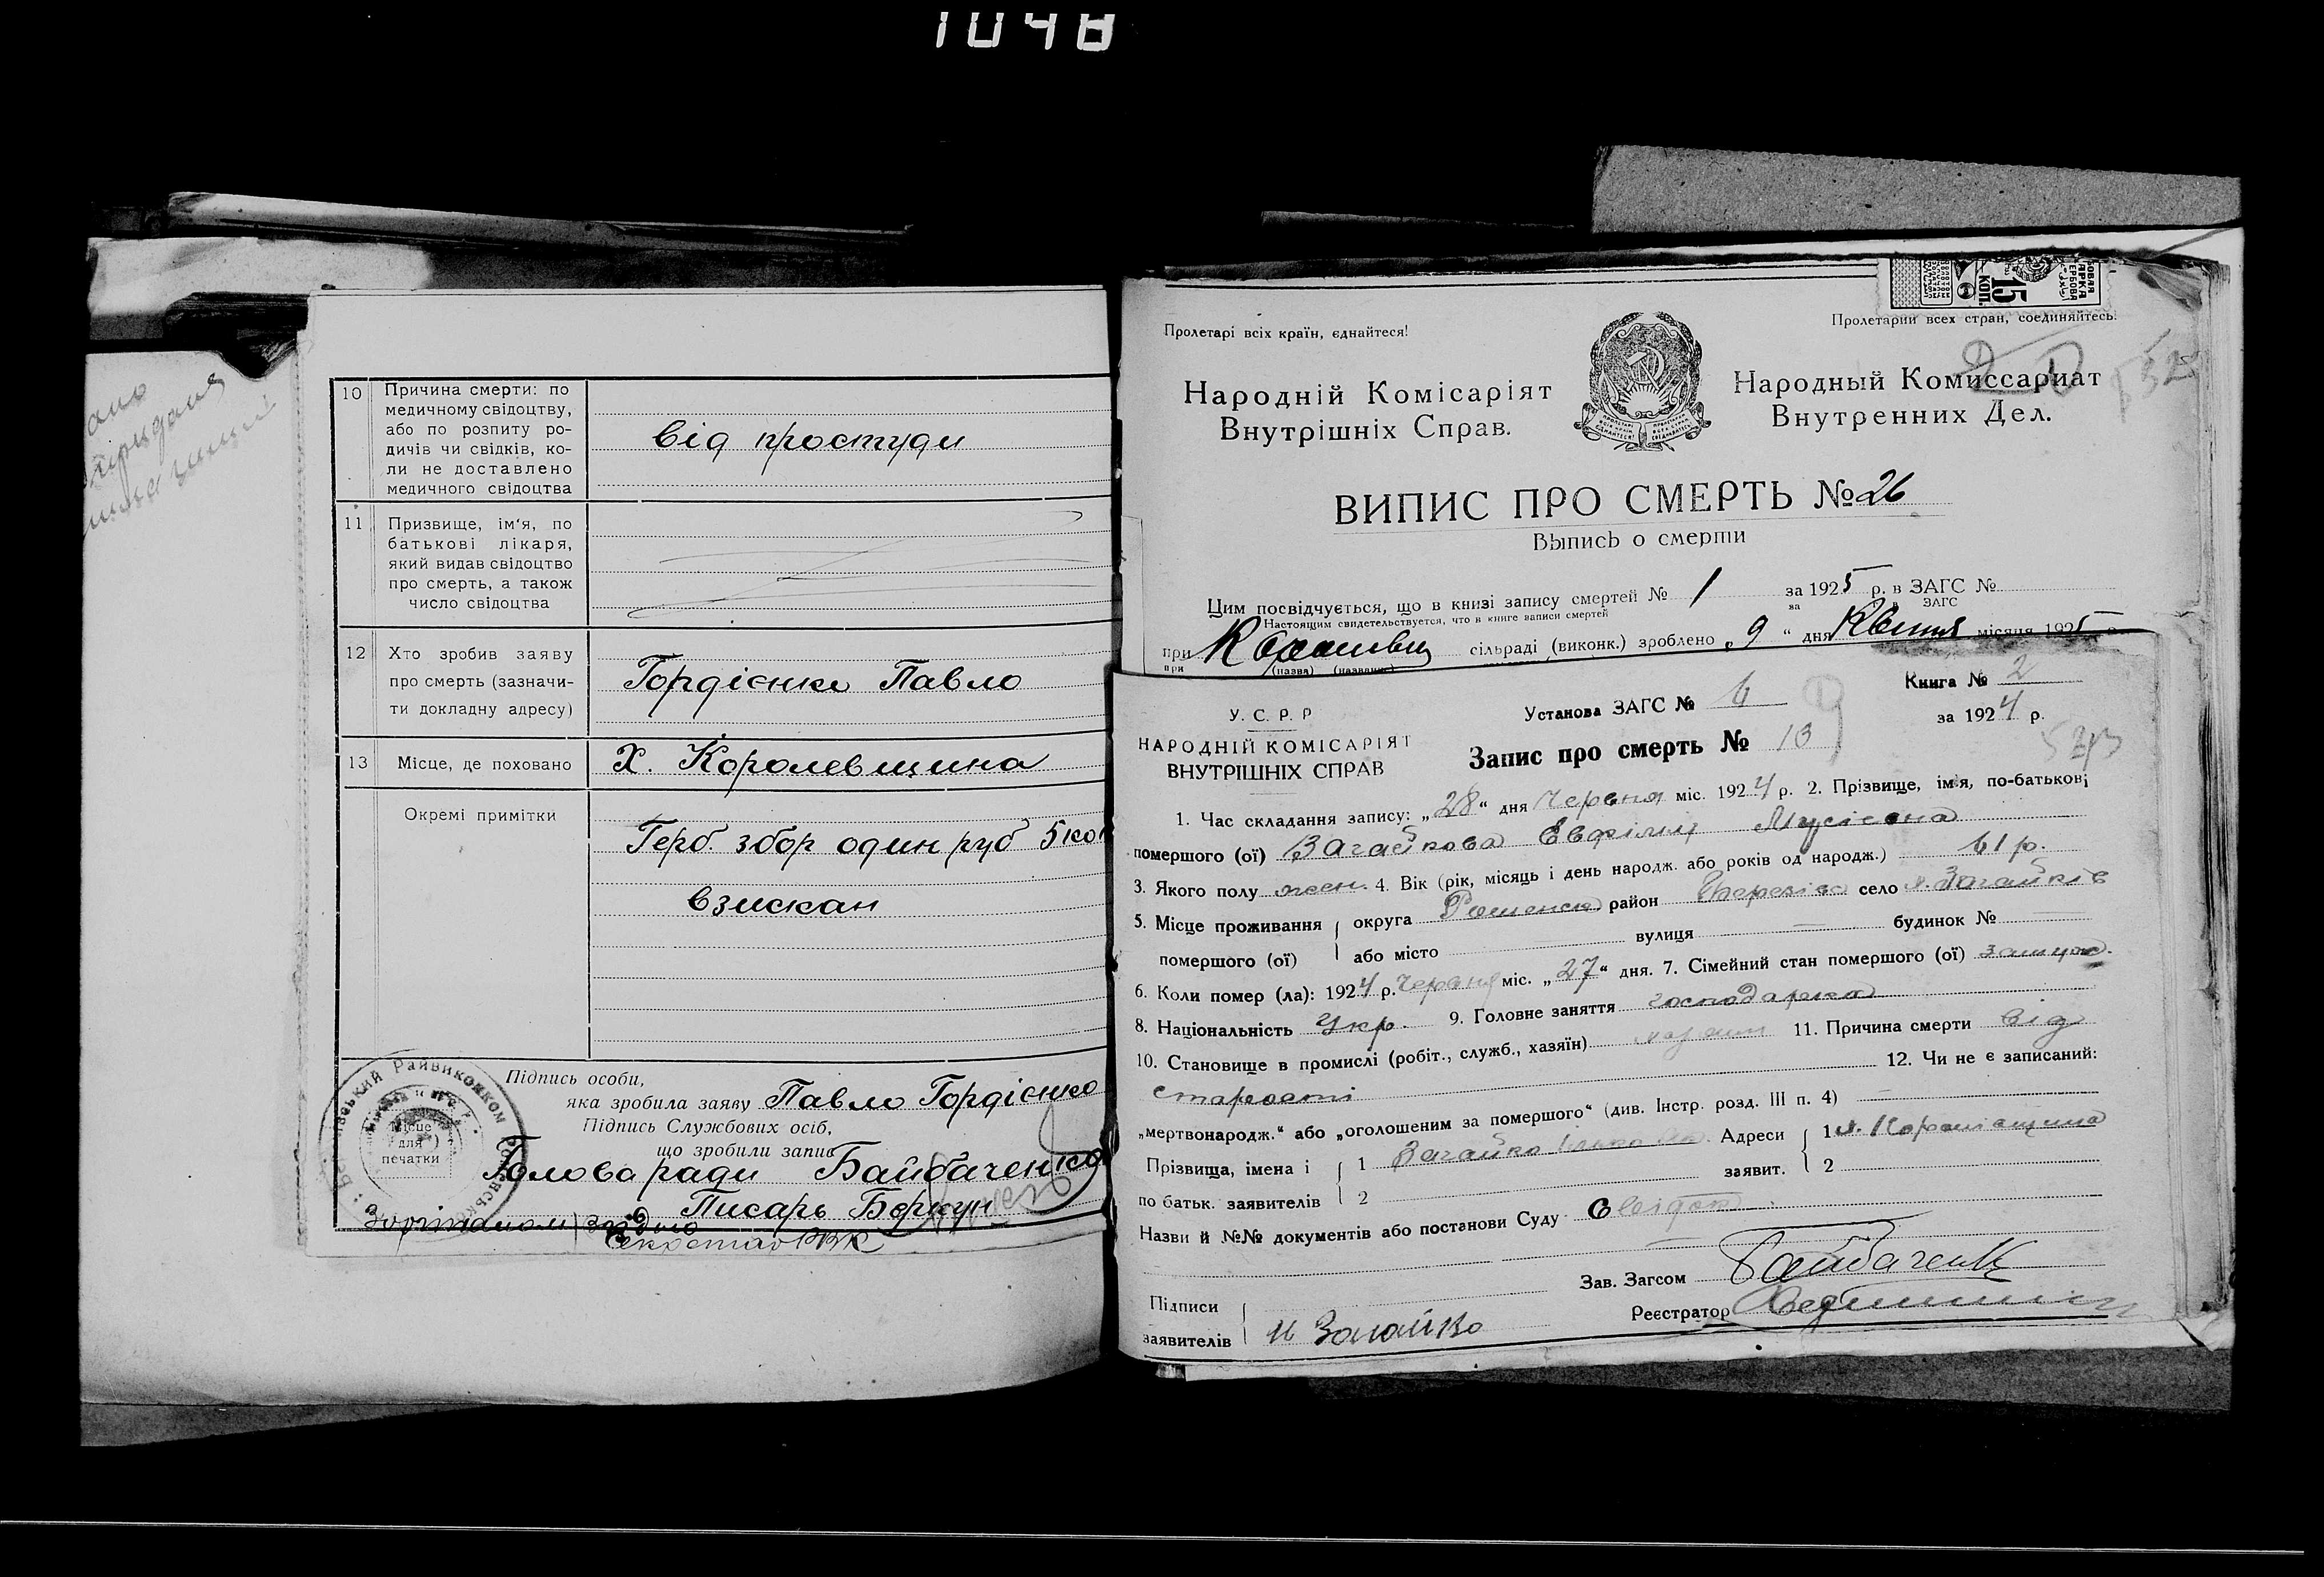 1048
10 Причина смерти: по
медичному свідоцтву,
або по розпиту ро-
дичів чи свідків, ко-
ли не доставлено
медичного свідоцтва
від простуди
11 Призвище, ім'я, по
батькові лікаря,
який видав свідоцтво
про смерть, а також
число свідоцтва
12 Хто зробив заяву
про смерть (зазначи-
ти докладну адресу)
Гордієнко Павло
13 Місце, де поховано
Х. Королевщина
Окремі примітки
Герб. збор один руб 5 коп
взискан
Підпись особи,
яка зробила заяву Павло Гордієнко
Підпись Службових осіб,
що зробили запис
Голова ради Байбаченко
Писарь Боркун
Місце
для
печатки
Райвиконком
Пролетарі всіх країн, єднайтеся!
Пролетарии всех стран, соединяйтесь!
15 КОП.
Народній Комісаріят
Внутрішніх Справ.
Народный Комиссариат
Внутренних Дел.
ВИПИС ПРО СМЕРТЬ № 26
Выпись о смерти
Цим посвідчується, що в книзі запису смертей № 1 за 1925 р. в ЗАГС №
Настоящим свидетельствуется, что в книге записи смертей за в ЗАГС
при сільраді (виконк.) зроблено „9“ дня Квітня місяця 1925
при (назва) (название)
У. С. Р. Р
НАРОДНІЙ КОМІСАРІЯТ
ВНУТРІШНІХ СПРАВ
Установа ЗАГС № 6
Книга № 2
за 1924 р.
Запис про смерть № 13
1. Час складання запису: „28“ дня Червня міс. 1924 р. 2. Прізвище, ім'я, по-батькові
помершого (ої) Загайкова Мусієвна
3. Якого полу жен. 4. Вік (рік, місяць і день народж. або років од народж.) 61 р.
5. Місце проживання
помершого (ої)
округа Роменська район село х. Загайків
або місто вулиця будинок №
6. Коли помер (ла): 1924 р. Червня міс. „27“ дня. 7. Сімейний стан помершого (ої)
8. Національність Укр. 9. Головне заняття господарка
10. Становище в промислі (робіт., служб., хазяїн) 11. Причина смерти від
старості 12. Чи не є записаний:
„мертвонародж.“ або „оголошеним за помершого“ (див. Інстр. розд. III п. 4)
Прізвища, імена і
по батьк. заявителів
1 Загайко
2
Адреси
заявит.
1 х.
2
Назви й №№ документів або постанови Суду
Зав. Загсом Байбаченк
Реєстратор
Підписи
заявителів
Загайко